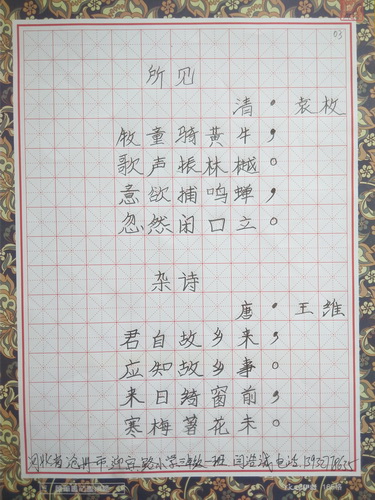 03
所见
清·袁枚
牧童骑黄牛，
歌声振林樾。
意欲捕鸣蝉，
忽然闭口立。
杂诗
唐·王维
君自故乡来，
应知故乡事。
来日绮窗前，
寒梅著花未。
河北省沧州市迎宾路小学 一班 电话